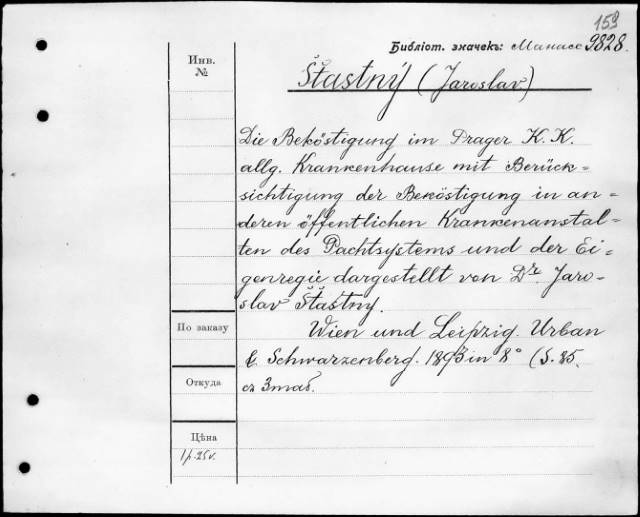 159
Библіот. значекъ: Манасс 9828.
Инв.
№
Šťastný (Jaroslav.)
Die Beköstigung im Prager K. K.
allg. Krankenhause mit Berück=
sichtigung der Beköstigung in an=
deren öffentlichen Krankenanstal=
ten des Pachtsystems und der Ei=
genregie dargestellt von Dr. Jaro=
slav Šťastný.
По заказу
Wien und Leipzig. Urban
& Schwarzenberg. 1893 in 8° (S. 85.
Откуда
съ 3 таб.
Цѣна
1 р. 25 к.